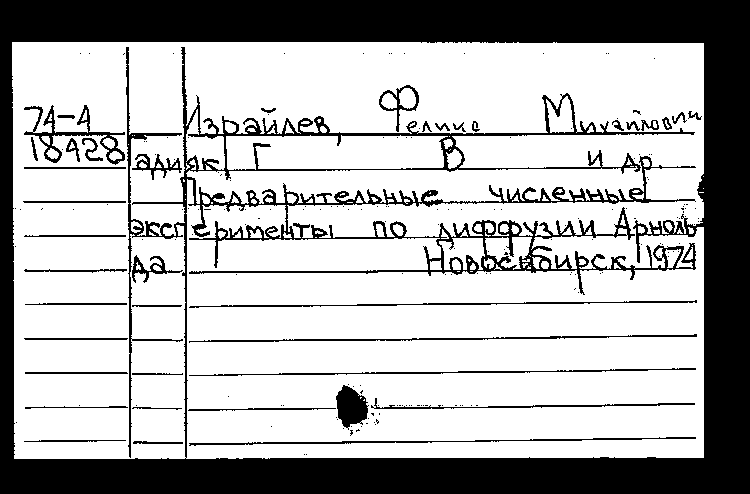 74-4 Израйлев, Феликс Михайлович
18428 Гадияк, Г В и др.
Предварительные численные
эксперименты по диффузии Арноль-
да Новосибирск, 1974